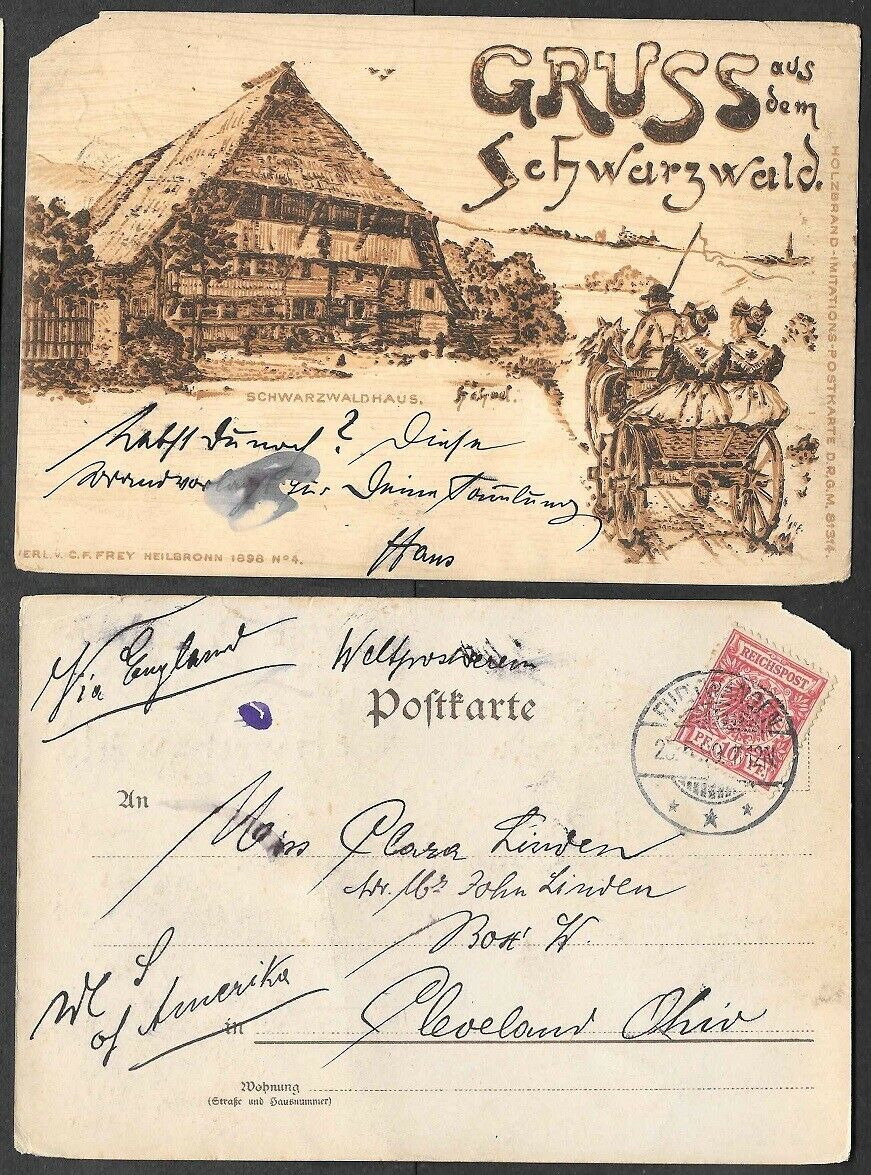 GRUSS aus
dem
Schwarzwald.
HOLZBRAND-IMITATIONS-POSTKARTE D.R.G.M. 81314.
SCHWARZWALDHAUS.
Du noch? Diese
zur Deine Samlung
Hans
VERL. V. C. F. FREY HEILBRONN 1898 No 4.
Via England
Weltpostverein
Postkarte
REICHSPOST
An
Miss Clara Linden
Adr. Mr John Linden
Box W.
of Amerika
in Cleveland Ohio
Wohnung
(Straße und Hausnummer)